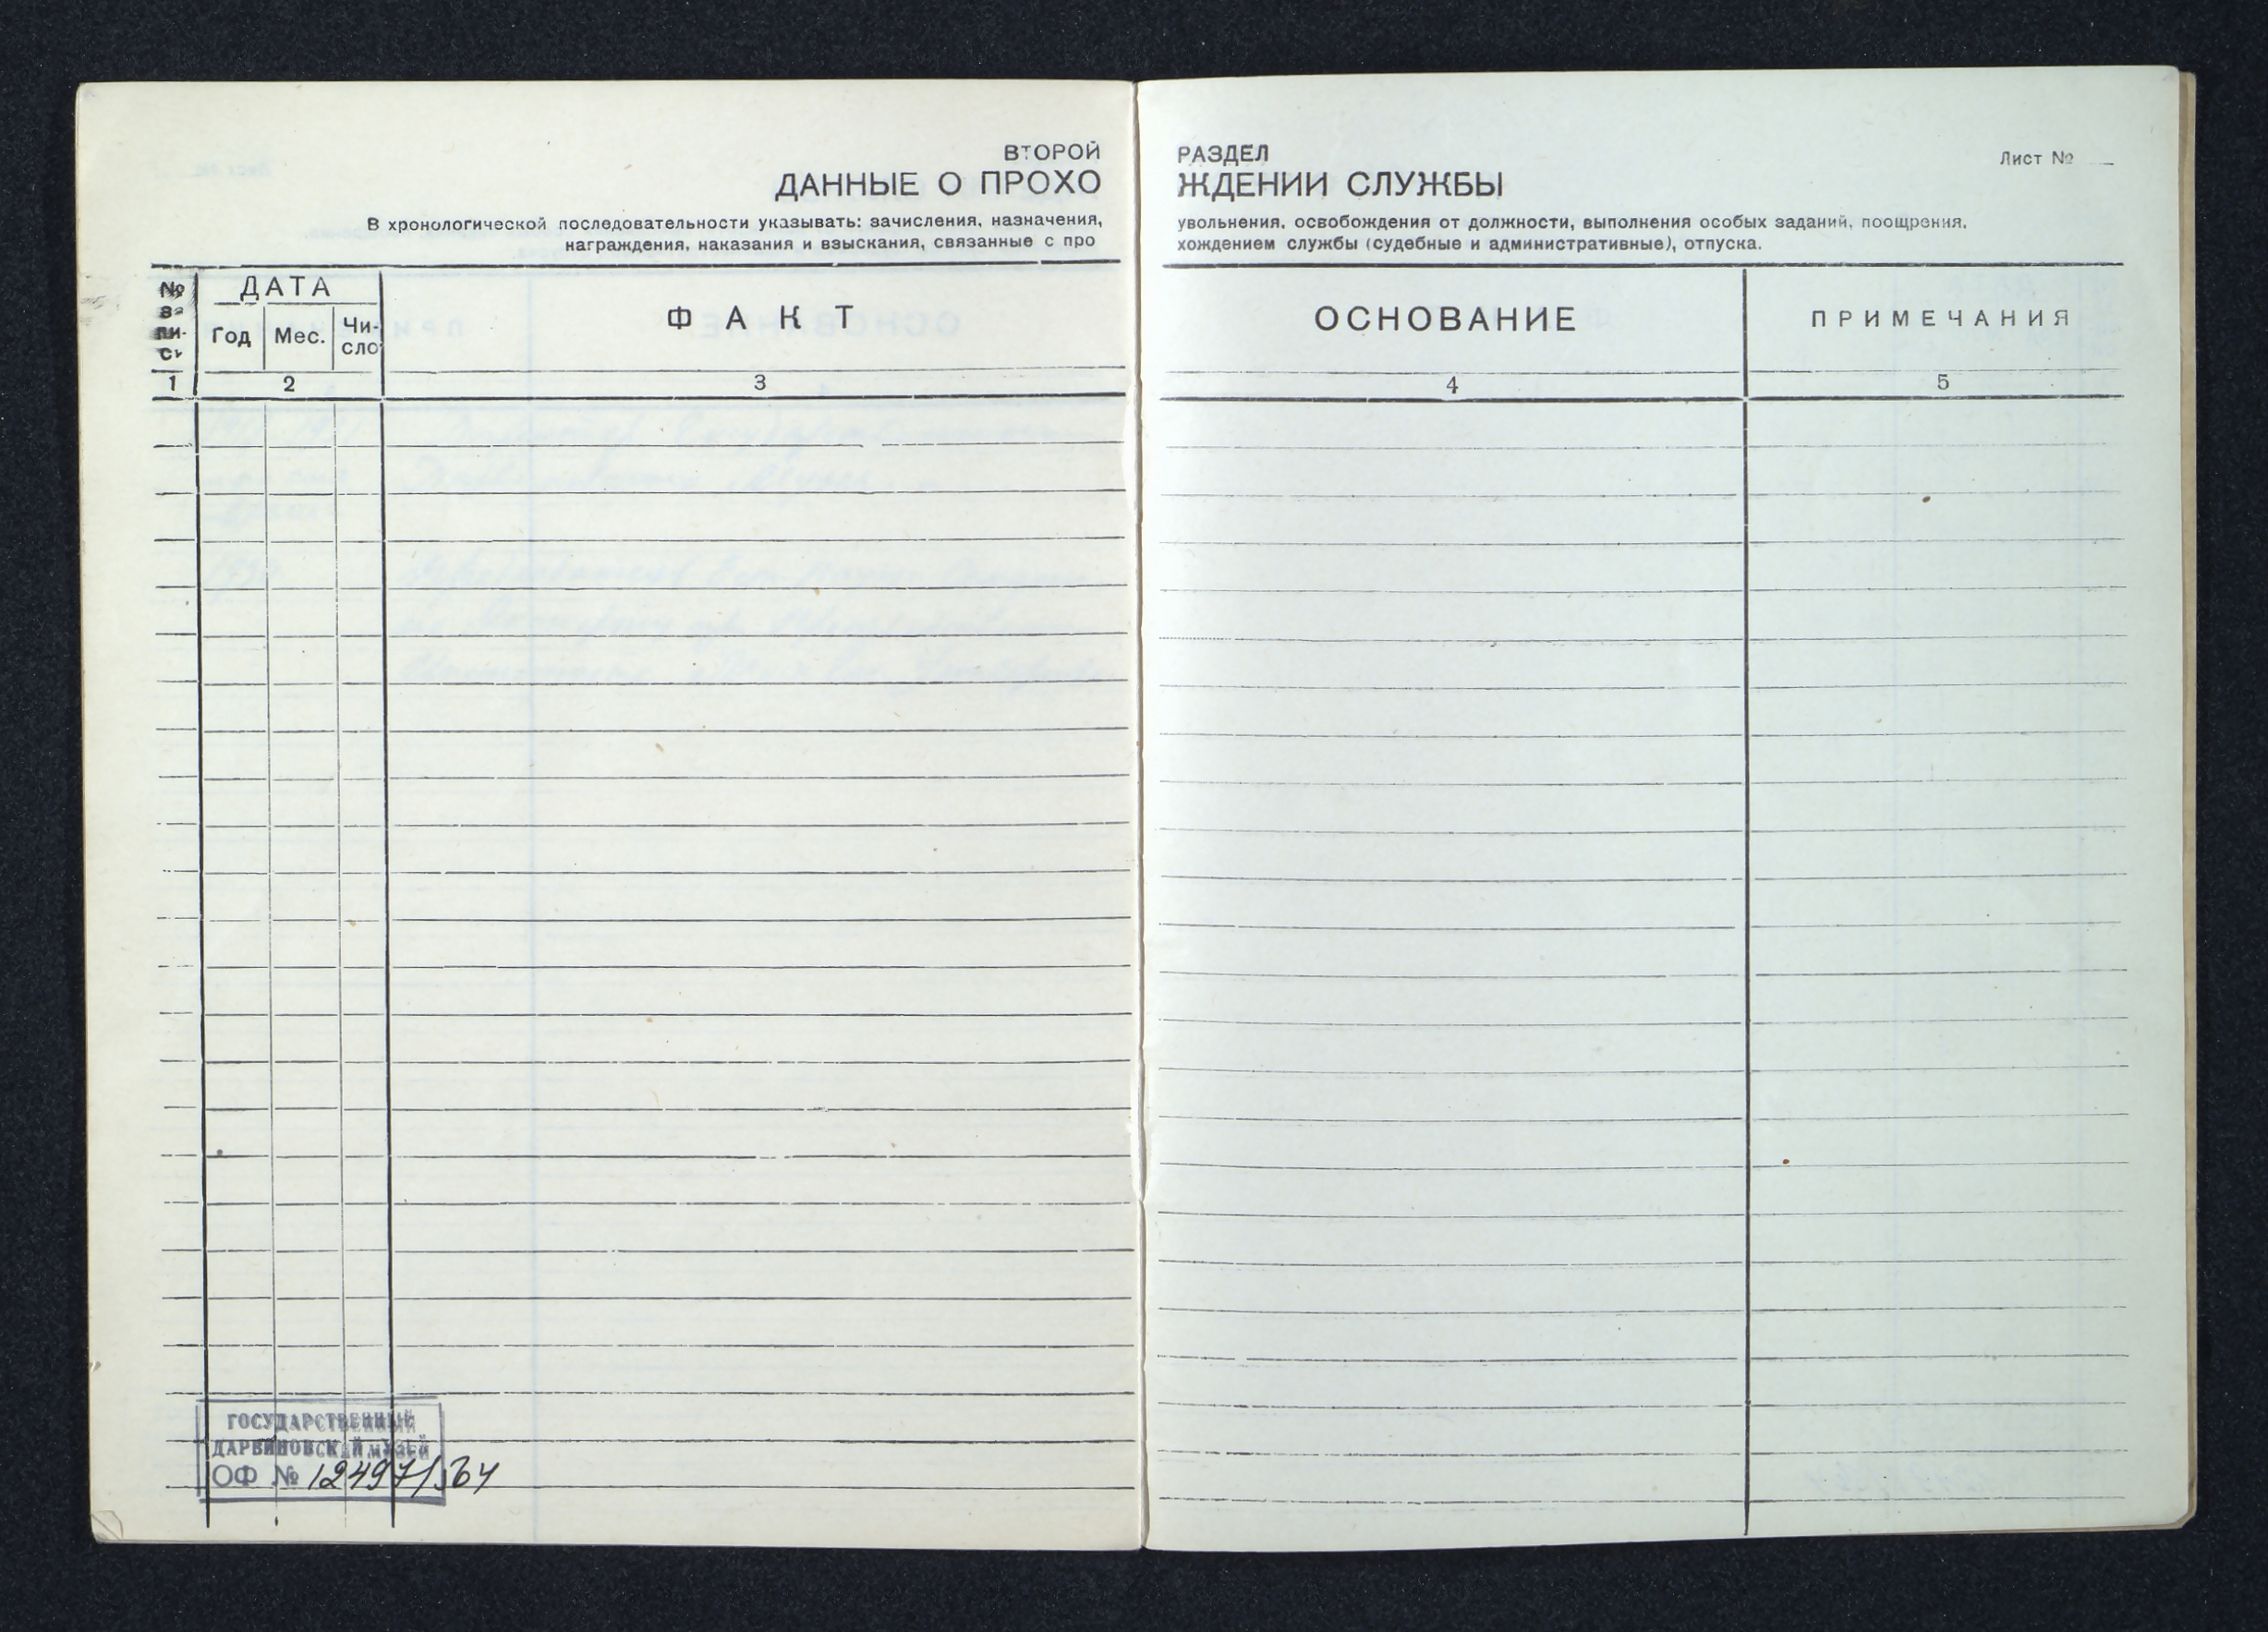 ВТОРОЙ РАЗДЕЛ
Лист №
ДАННЫЕ О ПРОХОЖДЕНИИ СЛУЖБЫ
В хронологической последовательности указывать: зачисления, назначения, увольнения, освобождения от должности, выполнения особых заданий, поощрения,
награждения, наказания и взыскания, связанные с прохождением службы (судебные и административные), отпуска.
№ записи
ДАТА
Год Мес. Число
ФАКТ
ОСНОВАНИЕ
ПРИМЕЧАНИЯ
1 2 3 4 5
ГОСУДАРСТВЕННЫЙ
ДАРВИНОВСКИЙ МУЗЕЙ
ОФ № 12497/564